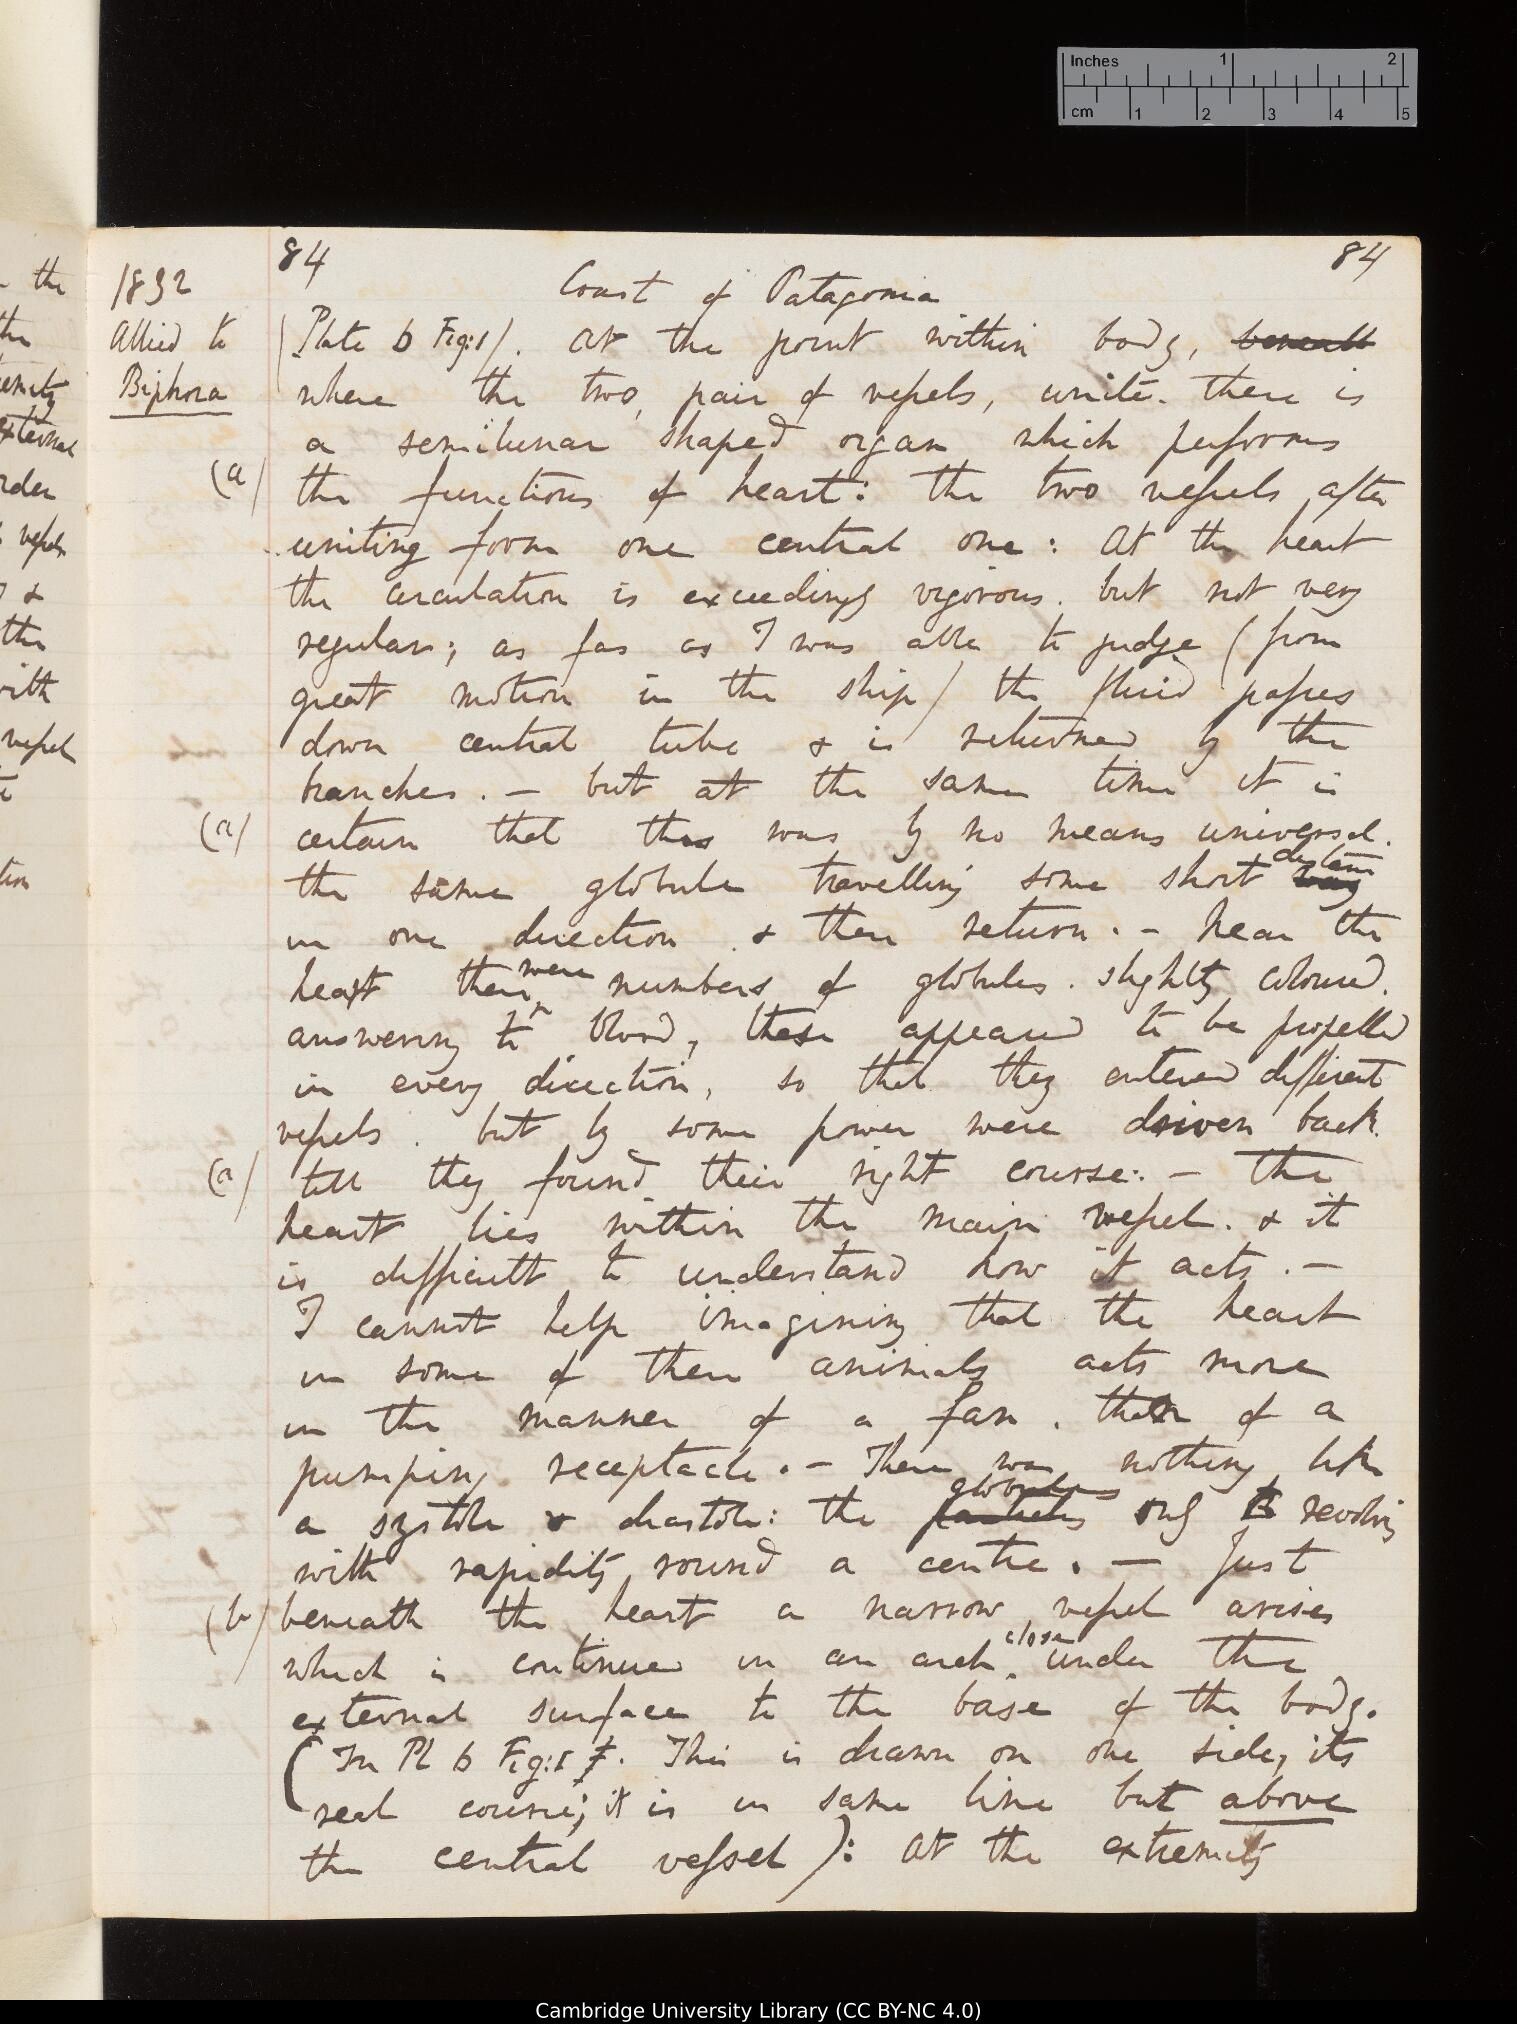 84
84
1832
Coast of Patagonia
Allied to
Biphora
(Plate 6 Fig:1). At the point within body, beneath
where the two, pair of vessels, unite. there is
a semilunar shaped organ which performs
(a)
the functions of heart: the two vessels after
uniting form one central one: At the heart
the circulation is exceedingly vigorous. but not very
regular; as far as I was able to judge (from
great motion in the ship) the fluid passes
down central tube & is returned by the
branches. — but at the same time it is
(a)
certain that this was by no means universal.
the same globule travelling some short way distance
in one direction & then return. — Near the
heart there were numbers of globules. slightly coloured.
answering to blood, these appeared to be propelled
in every direction, so that they entered different
vessels. but by some power were driven back.
(a)
till they found their right course: — The
heart lies within the main vessel. & it
is difficult to understand how it acts. —
I cannot help imagining that the heart
in some of these animals acts more
in the manner of a fan. than of a
pumping receptacle. — There was nothing like
a systole & diastole: the particles globules only revolving
with rapidity round a centre. — Just
(b)
beneath the heart a narrow vessel arises
which is continued in an arch close under the
external surface to the base of the body.
(In Pl 6 Fig:1 f. This is drawn on one side, its
real course; it is in same line but above
the central vessel): At the extremity
the
external
vessel
&
the
with
vessel
Inches 1 2
cm 1 2 3 4 5
Cambridge University Library (CC BY-NC 4.0)